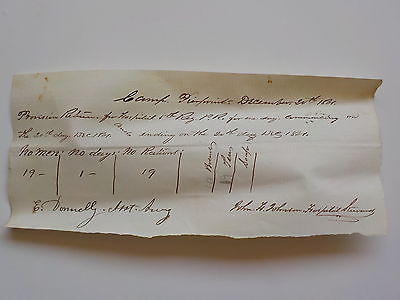 Camp December 20th 1861
Provision Return for Hospital 5th Reg P.R.C. for one day, commencing on
the 20th day Dec 1861 and ending on the 20th day Dec 1861.
No Men No days No Rations
19 - 1 - 19
E. Donnelly - Asst Surg
John H. Johnson Hospital Steward